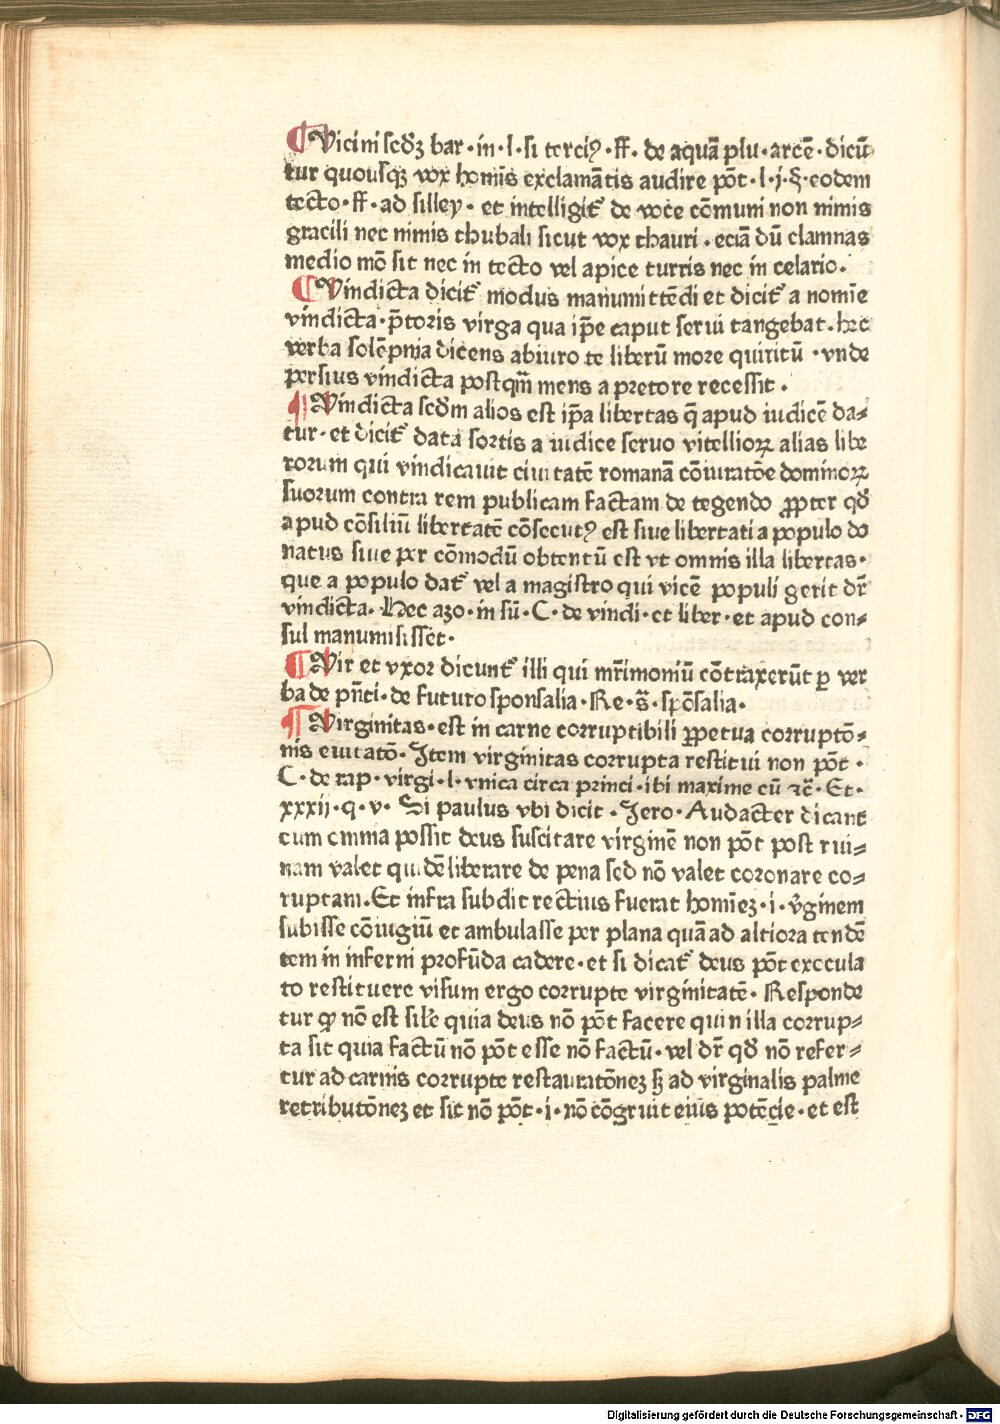 ¶Vicini scd̃ꝫ bar·in·l·si terciꝰ·ff·de aquã plu·arcẽ·dicũ
tur quousqꝫ vox homĩs exclamãtis audire põt·l·j·§·eodem
tecto·ff·ad silley·et intelligit᷑ de voce cõmuni non nimis
gracili nec nimis thubali sicut vox thauri·eciã dũ clamnas
medio mõ sit nec in tecto vel apice turris nec in celario.
¶Vindicta dicit᷑ modus manumittẽdi et dicit᷑ a nomĩe
vindicta·p̃toris virga qua ip̃e caput serui tangebat·hec
verba solẽpnia dicens abiuro te liberũ more quiritũ·vnde
persius vindicta postqm̃ mens a pretore recessit.
¶Vindicta scd̃m alios est ip̃a libertas q̃ apud iudicẽ da⸗
tur·et dicit᷑ data sortis a iudice seruo vitellioꝝ alias libe
rorum qui vindicauit ciuitatẽ romanã cõiuratõe dominoꝝ
suorum contra rem publicam factam de tegendo ꝓpter qd̃
apud cõsiliũ libertatẽ cõsecutꝰ est siue libertati a populo do
natus siue per cõmodũ obtentũ est vt omnis illa libertas·
que a populo dat᷑ vel a magistro qui vicẽ populi gerit dr̃
vindicta·Hec azo·in sũ·C·de vindi·et liber·et apud con⸗
sul manumisisset·
¶Vir et vxor dicunt᷑ illi qui mr̃imoniũ cõtraxerũt ꝑ ver
ba de pñti·de futuro sponsalia·Re·s̃·spõsalia·
¶Virginitas·est in carne corruptibili ꝑpetua corruptõ⸗
nis euitatõ·Item virginitas corrupta restitui non põt·
C·de rap·virgi·l·vnica circa princi·ibi maxime cũ ⁊c̃·Et·
xxxij·q·v·Si paulus vbi dicit·Jero·Audacter dicant
cum omnia possit deus suscitare virginẽ non põt post rui⸗
nam valet quidẽ liberare de pena sed nõ valet coronare co⸗
ruptam·Et infra subdit rectius fuerat homĩeꝫ·i·v̓ginem
subisse cõiugiũ et ambulasse per plana quã ad altiora tendẽ
tem in inferni profũda cadere·et si dicat᷑ deus põt excecula
to restituere visum ergo corrupte virginitatẽ·Responde
tur ꝙ nõ est sil̓e quia deus nõ põt facere quin illa corrup⸗
ta sit quia factũ nõ põt esse nõ factũ·vel dr̃ qd̃ nõ refer⸗
tur ad carnis corrupte restauratõneꝫ sꝫ ad virginalis palme
retributõneꝫ et sic nõ põt·i·nõ cõgruit eius potẽcie·et est
Digitalisierung gefördert durch die Deutsche Forschungsgemeinschaft - DFG